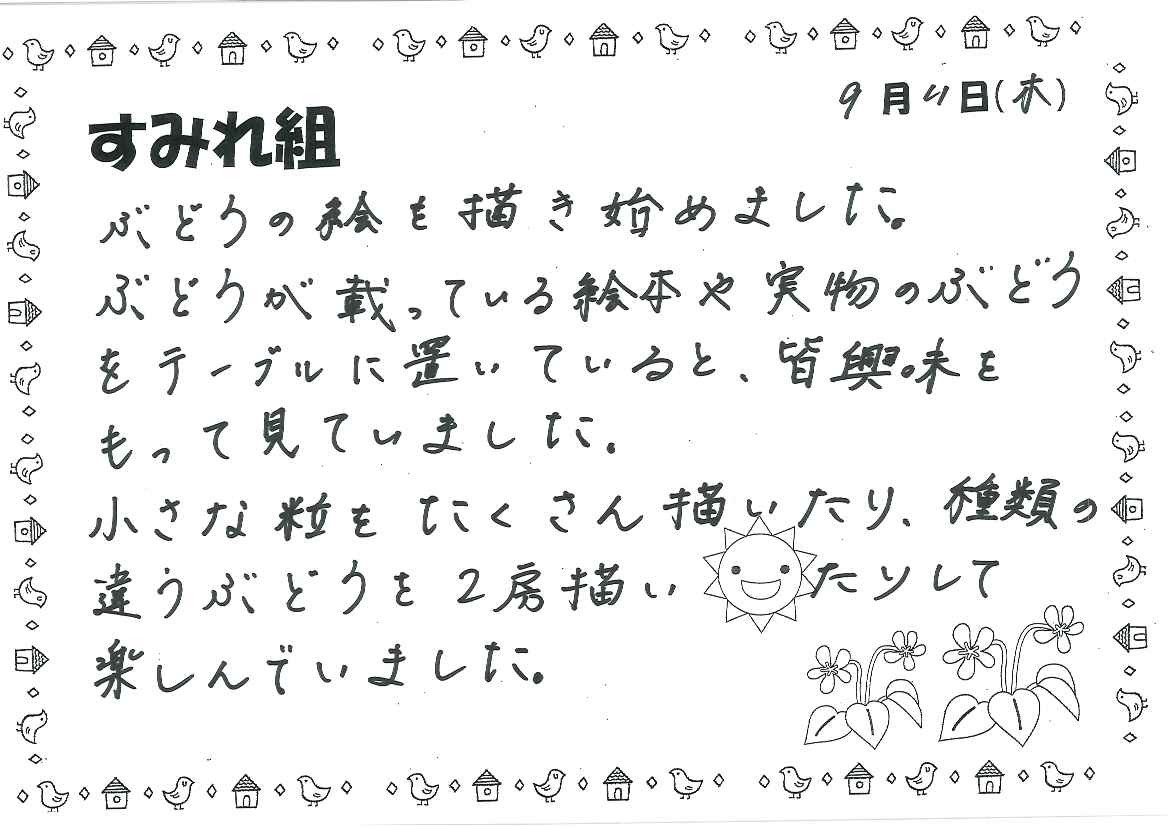 9月11日(木)
すみれ組
ぶどうの絵を描き始めました。
ぶどうが載っている絵本や実物のぶどう
をテーブルに置いていると、皆興味を
もって見ていました。
小さな粒をたくさん描いたり、種類の
違うぶどうを2房描いたりして
楽しんでいました。